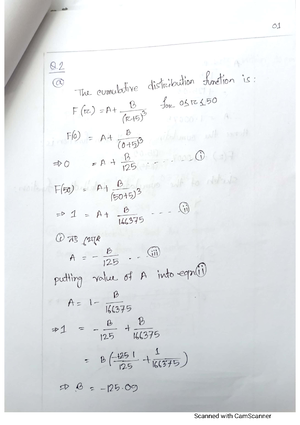 01
Q.2
(a)
The cumulative distribution function is:
F(x) = A + B/(x+5)^3 for 0≤x≤50
F(0) = A + B/(0+5)^3
⇒ 0 = A + B/125 ------ (i)
F(50) = A + B/(50+5)^3
⇒ 1 = A + B/166375 --- (ii)
(i) নং থেকে
A = - B/125 -- (iii)
putting value of A into eqn (ii)
A = 1 - B/166375
⇒ 1 = - B/125 + B/166375
= B( /125 + 1/166375)
⇒ B = -125.09
Scanned with CamScanner